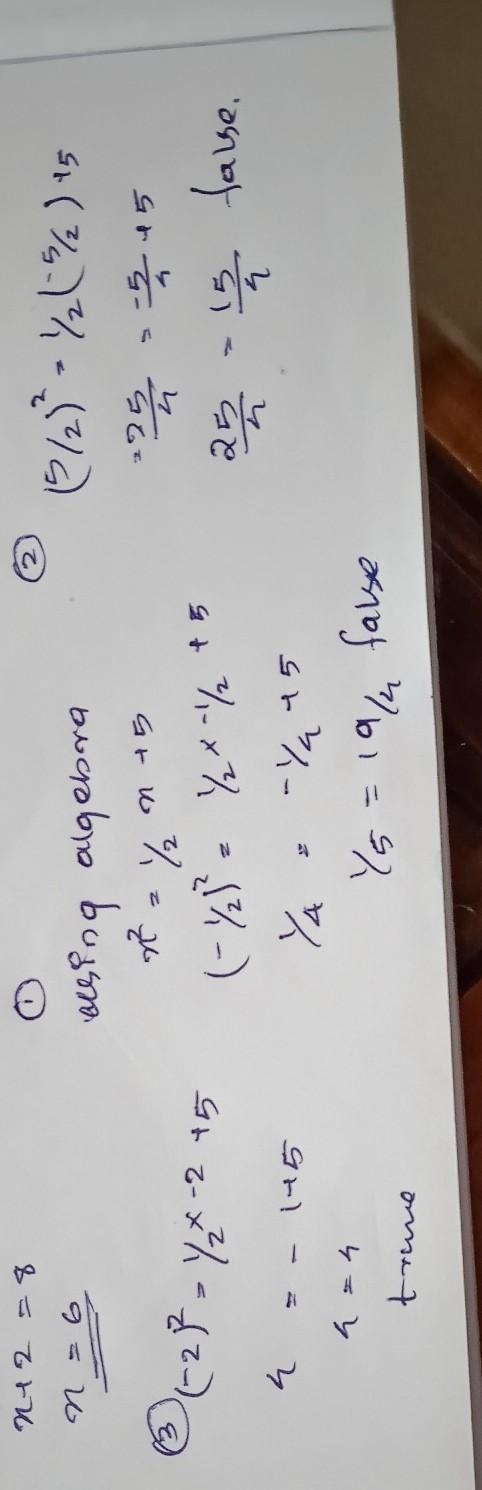 x+2 = 8
x = 6
①
using algebra
x² = 1/2 x +5
(-1/2)² = 1/2 x -1/2 + 5
1/4 = -1/4 +5
1/5 = 19/4 false
②
(5/2)² = 1/2 (-5/2) +5
= 25/4 = -5/4 +5
25/4 = 15/4 false.
③ (-2)² = 1/2 x -2 +5
4 = - 1+5
4 = 4
true